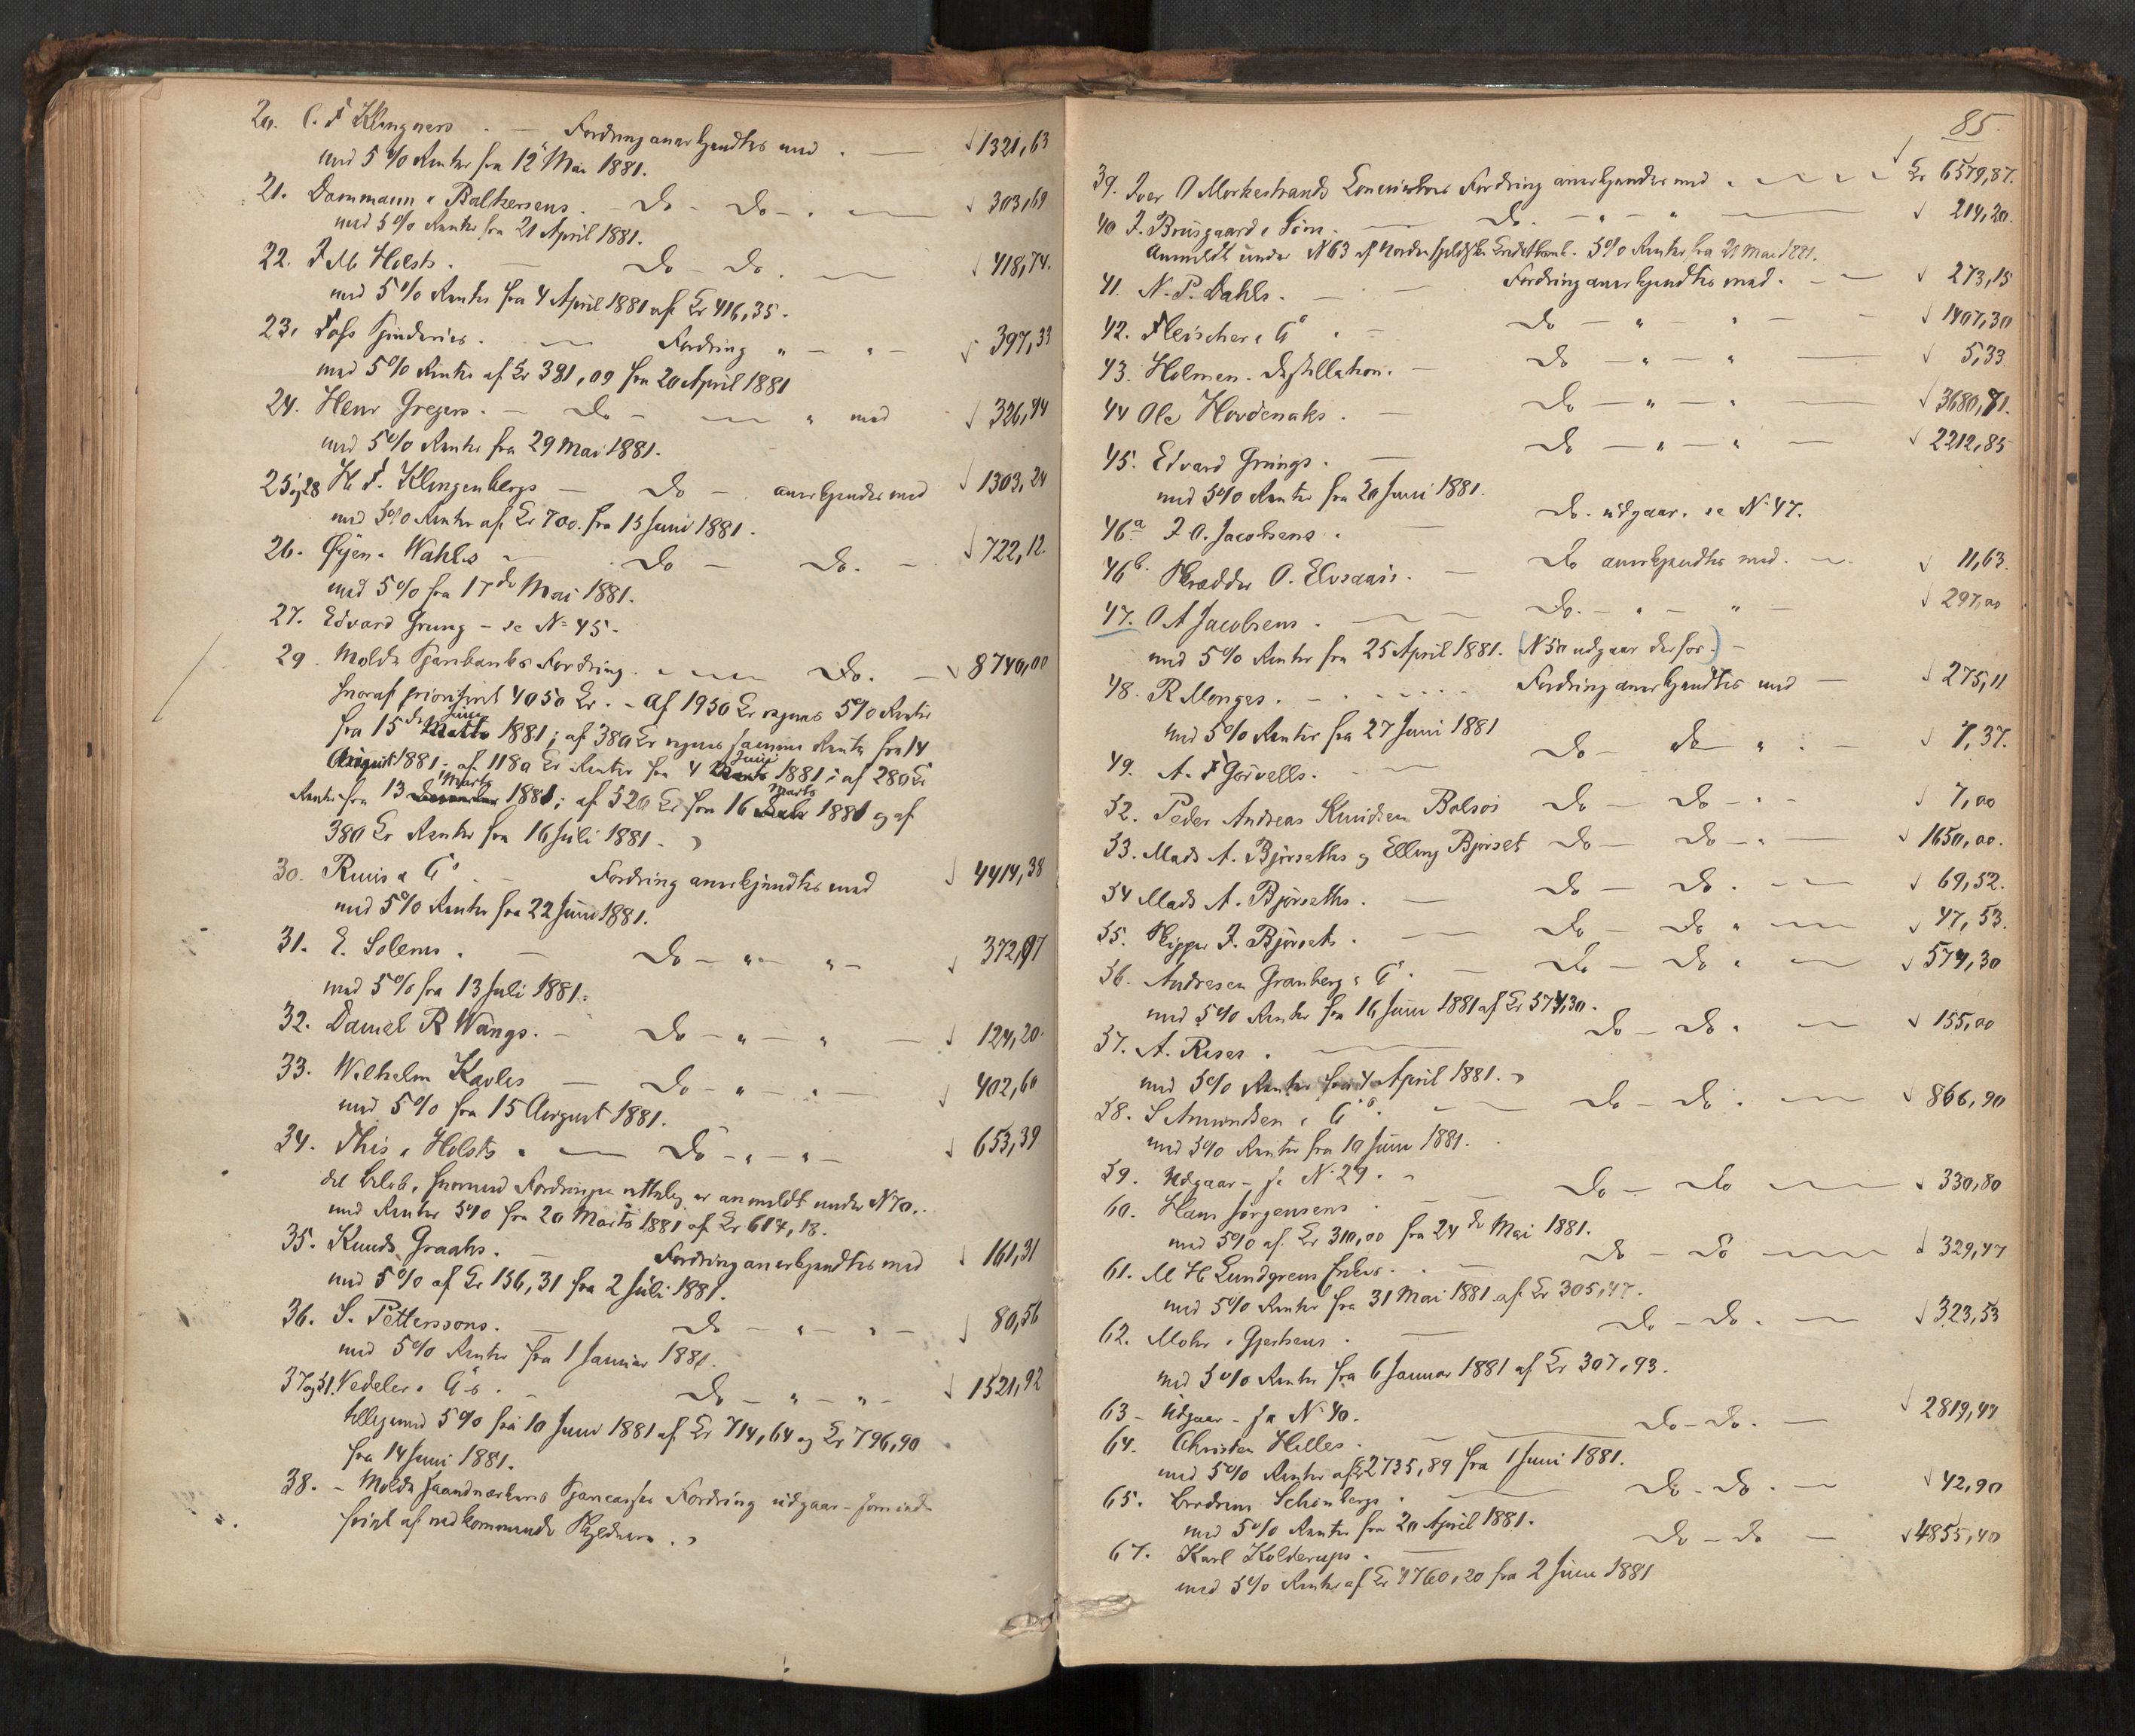 20. C. F. Klingners . — Fordring anerkjendtes med . — 1321,63
med 5 % Renter fra 12 Mai 1881.
21. Dammann & Balkersens . — Do — Do — . — 303,69
med 5 % Renter fra 21 April 1881.
22. F M Holsts . — Do — Do . — 418,74.
med 5 % Renter fra 4 April 1881 af Kr 416,35.
23. Foss Spinderies . — Fordring " — " — 397,33
med 5 % Renter af Kr 381,09 fra 20 April 1881
24. Henr Gregers . — Do — " med 326,94
med 5 % Renter fra 29 Mai 1881.
25 og 28 H. F. Klingenbergs — Do — anerkjendes med 1303,24
med 5 % Renter af Kr 700. fra 15 Juni 1881.
26. Øyen & Wahls — Do — Do. — 722,12.
med 5 % fra 17de Mai 1881.
27. Edvard Grung — se No 45.
29. Molde Sparebanks Fordring . — Do. — 8740,00
hvoraf prioriteret 4050 Kr. — Af 1950 Kr regnes 5 % Renter
fra 15de Juni 1881; af 380 Kr regnes samme Rente fra 14
August 1881; af 1180 Kr Renter fra 4 Juni 1881; af 280 Kr
Rente fra 13 Marts 1881; af 520 Kr fra 16 Marts 1881 og af
380 Kr Renter fra 16 Juli 1881.
30. Ruus & Co . — Fordring anerkjendtes med 4414,38
med 5 % Renter fra 22 Juni 1881.
31. E. Solems . — Do — " — " — 372,97
med 5 % fra 13 Juli 1881.
32. Daniel R Wangs. — Do — " — " — 124,20.
33. Wilhelm Kavlis — Do — " — " — 402,60
med 5 % fra 15 August 1881.
34. This & Holsts . — Do — " — " — 653,39
det Beløb, hvormed Fordringen rettelig er anmeldt under N 70.
med Renter 5 % fra 20 Marts 1881 af Kr 614,18.
35. Knuds Graahs. — Fordring anerkjendtes med 161,31
med 5 % af Kr 156,31 fra 2 Juli 1881.
36. S. Petterssons. — Do — " — " — 80,56
med 5 % Renter fra 1 Januar 1881.
37 og 51. Vedeler & Co s . — Do — " — " — 1521,92
tilligemed 5 % fra 10 Juni 1881 af Kr 714,64 og Kr 796,90
fra 14 Juni 1881.
38. — Molde Haandværkeres Sparecasses Fordring udgaar — som ind-
friet af vedkommende
85.
39. Iver O Morkestrands Fordring anerkjendes med . — Kr 6579,87.
40 J. Brusgaard & Søn. — Do. — " — " — 214,20.
Anmeldt under N 63 af Nordenfjeldske Kreditbank. 5 % Renter fra 21 Mai 1881.
41. N. P. Dahls. — Fordring anerkjendtes med . — 273,15
42. Fleischer & Co . — Do — " — " — 1407,30
43. Holmen. Destillation. — Do — " — " — 5,33
44 Ole Hovdenaks . — Do — " — " — 3680,71.
45. Edvard Grungs . — Do — " — " — 2212,85
med 5 % Renter fra 20 Juni 1881.
46a. J O. Jacobsens . — Do. udgaar. se No 47.
46b. Skrædder O. Elvsaas. — Do anerkjendtes med. — 11,63.
47. O A Jacobsens . — Do. — " — " — 297,00
med 5 % Renter fra 25 April 1881. (N 50 udgaar derfor.) —
48. R Monges . — Fordring anerkjendtes med — 275,11
med 5 % Renter fra 27 Juni 1881
49. A. F Gørvells. — Do — do — " . — 7,37.
52. Peder Andreas Knudsen Bolsøi Do — Do — . — 7,00
53. Mads A. Bjørseths og Elling Bjørset Do — Do — . — 1650,00.
54 Mads A. Bjørseths. — Do — Do . — 69,52.
55. J. Bjørsets . — Do — Do " — 47,53.
56. Andresen Granberg & Co . — Do — Do " — 574,30
med 5 % Renter fra 16 Juni 1881 af Kr 574,30.
57. A. Reses . — Do — Do . — 155,00
med 5 % Renter fra 4 April 1881.
58. S Amundsen & Co s. — Do — Do . — 866,90
med 5 % Renter fra 10 Juni 1881.
59. Udgaar — se No 29.
60. Hans Jørgensens . — Do — Do — 330,80
med 5 % af Kr 310,00 fra 24de Mai 1881.
61. M H Lundgrens Enkes . — Do — Do — 329,47
med 5 % Renter fra 31 Mai 1881 af Kr 305,47.
62. Mohr & Gjerhens . — Do — Do . — 323,53
med 5 % Renter fra 6 Januar 1881 af Kr 307,93.
63 — Udgaar — se No 40.
64. Christen Hilles . — Do — Do . — 2819,44
med 5 % Renter af Kr 2735,89 fra 1 Juni 1881.
65. Brødrene Schønbergs . — Do — Do . — 42,90
med 5 % Renter fra 20 April 1881.
67. Karl Kolderups . — Do — Do — 4855,40
med 5 % Renter af Kr 4760,20 fra 2 Juni 1881